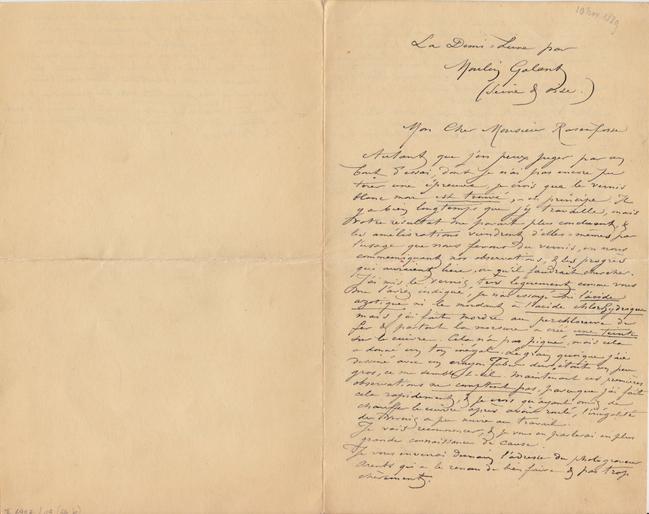 10 nov 1889
La Demi-Lune par
Moulin Galant
(Seine & Oise.)
Mon Cher Monsieur Rassenfosse
Autant que j'en peux juger par un
bout d'essai, dont je n'ai pas encore pu
tirer une épreuve, je crois que le vernis
blanc mou est trouvé, en principe. Il
y a bien longtemps que j'y travaille, mais
votre résultat me paraît plus concluant, &
les améliorations viendront d'elles-mêmes par
l'usage que nous ferons du vernis, en nous
communiquant nos observations, & les progrès
que auraient lieu, ou qu'il faudrait chercher.
J'ai mis le vernis, très légèrement comme vous
me l'avez indiqué, je n'ai essayé ni l'acide
azotique ni le mordant à l'acide chlorhydrique
mais j'ai fait mordre au perchlorure de
fer & partout la morsure a créé une teinte
sur le cuivre. Cela n'a pas piqué, mais cela
a donné un ton inégal. Le grain quoique j'aie
dessiné avec un crayon Faber dur, était un peu
gros, ce me semble-t-il maintenant ces premières
observations ne comptent pas, parce que j'ai fait
cela rapidement, & je crois qu'ayant omis de
chauffer le cuivre après avoir roulé, l'inégalité
du vernis a pu nuire au travail.
Je vais recommencer, & je vous en parlerai en plus
grande connaissance de cause.
Je vous enverrai demain l'adresse du photograveur
Arents qui a le renom de bien faire & pas trop
chèrement.